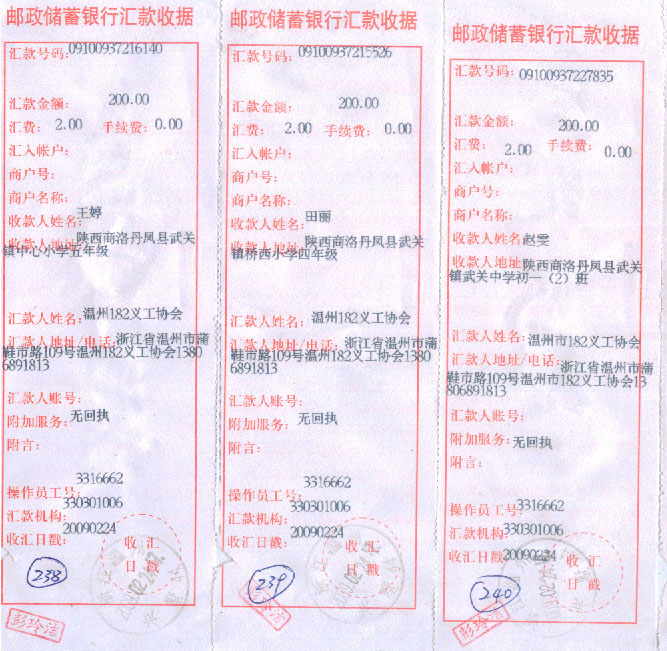 邮政储蓄银行汇款收据
汇款号码:09100937216140
汇款金额: 200.00
汇费: 2.00 手续费: 0.00
汇入帐户:
商户号:
商户名称:
收款人姓名: 王婷
收款人地址: 陕西商洛丹凤县武关
镇中心小学五年级
汇款人姓名: 温州182义工协会
汇款人地址/电话: 浙江省温州市蒲
鞋市路109号温州182义工协会1380
6891813
汇款人账号:
附加服务: 无回执
附言:
操作员工号: 3316662
汇款机构: 330301006
收汇日戳: 20090224
收汇
日戳
238
彭玲洁
邮政储蓄银行汇款收据
汇款号码:09100937215526
汇款金额: 200.00
汇费: 2.00 手续费: 0.00
汇入帐户:
商户号:
商户名称:
收款人姓名: 田丽
收款人地址: 陕西商洛丹凤县武关
镇桥西小学四年级
汇款人姓名: 温州182义工协会
汇款人地址/电话: 浙江省温州市蒲
鞋市路109号温州182义工协会1380
6891813
汇款人账号:
附加服务: 无回执
附言:
操作员工号: 3316662
汇款机构: 330301006
收汇日戳: 20090224
收汇
日戳
239
彭玲洁
邮政储蓄银行汇款收据
汇款号码: 09100937227835
汇款金额: 200.00
汇费: 2.00 手续费: 0.00
汇入帐户:
商户号:
商户名称:
收款人姓名: 赵雯
收款人地址: 陕西商洛丹凤县武关
镇武关中学初一（2）班
汇款人姓名: 温州市182义工协会
汇款人地址/电话: 浙江省温州市蒲
鞋市路109号温州市182义工协会13
806891813
汇款人账号:
附加服务: 无回执
附言:
操作员工号: 3316662
汇款机构: 330301006
收汇日戳: 20090224
收汇
日戳
240
彭玲洁